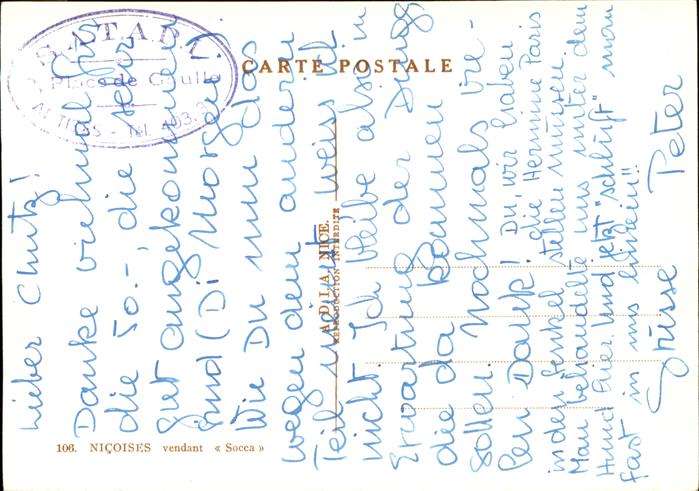 CARTE POSTALE
Place de Gaulle
Lieber Chutz!
Danke vielmal für
die 50.-, die sehr
gut angekommen
sind (Di Morgen).
Wie Du nun das
wegen dem anderen
Teil meinst weiss ich
nicht. Ich bleibe also in
Erwartung der Dinge
die da kommen
sollen. Nochmals vie-
len Dank! Du, wir haben
die Hermine Paris
in den Senkel stellen müssen.
Man behandelte uns unter dem
Hund hier. Und jetzt "schlüft" man
fast in uns hinein!!
Grüsse Peter
ADIA, NICE.
REPRODUCTION INTERDITE
106. NIÇOISES vendant « Socca »